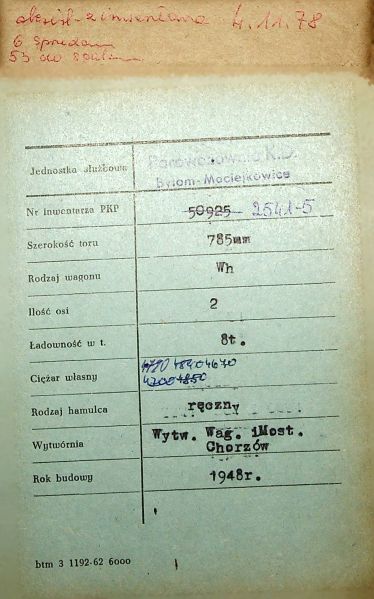 4.11.78
6
53 do
Jednostka służbowa Parowozownia K.D.
Bytom-Maciejkowice
Nr inwentarza PKP 50925 2541-5
Szerokość toru 785mm
Rodzaj wagonu Wh
Ilość osi 2
Ładowność w t. 8t.
4670
Ciężar własny 4850
Rodzaj hamulca ręczny
Wytwórnia Wytw. Wag. iMost.
Chorzów
Rok budowy 1948r.
btm 3 1192-62 6000